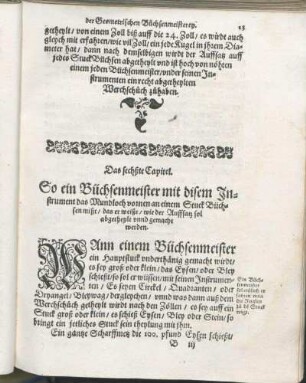 der Geometrischen Büchsenmeisterey. 13
getheylt/ von einem Zoll biß auff die 24. Zoll/ es würdt auch
gleych mit erfahren/ wie vil Zoll/ ein jede Kugel in jhrem Dia-
meter hat/ dann nach demselbigen würdt der Auffsatz auff
jedes Stuck Büchsen abgetheylt vnd ist hoch von nöhten
einem jeden Büchsenmeister/ vnder seinen In-
strumenten ein recht abgetheylten
Werckschuch zuhaben.
Das sechste Capitel.
So ein Büchsenmeister mit disem In-
strument das Mundloch vornen an einem Stuck Büch-
sen misst/ das er weisst/ wie der Auffsatz sol
abgetheylt vnnd gemacht
werden.
WAnn einem Büchsenmeister
ein Hauptstuck vnderhänig gemacht würdt/
es sey groß oder klein/ das Eysen/ oder Bley
schiesst/ so sol er wissen/ mit seinen Instrumen-
ten/ Es seyen Circkel/ Quadranten/ oder
Triangel/ Bleywag/ dergleychen/ vnnd was dann auß dem
Werckschuch getheylt würdt nach den Zollen/ es sey auff ein
Stuck groß oder klein/ es schieß Eysen/ Bley oder Stein/ so
bringt ein jetliches Stuck sein theylung mit jhm.
Ein Büch-
senmeister
Stuck
Ein gantze Scharffmetz die 100. pfund Eysen schiesst/
D iij